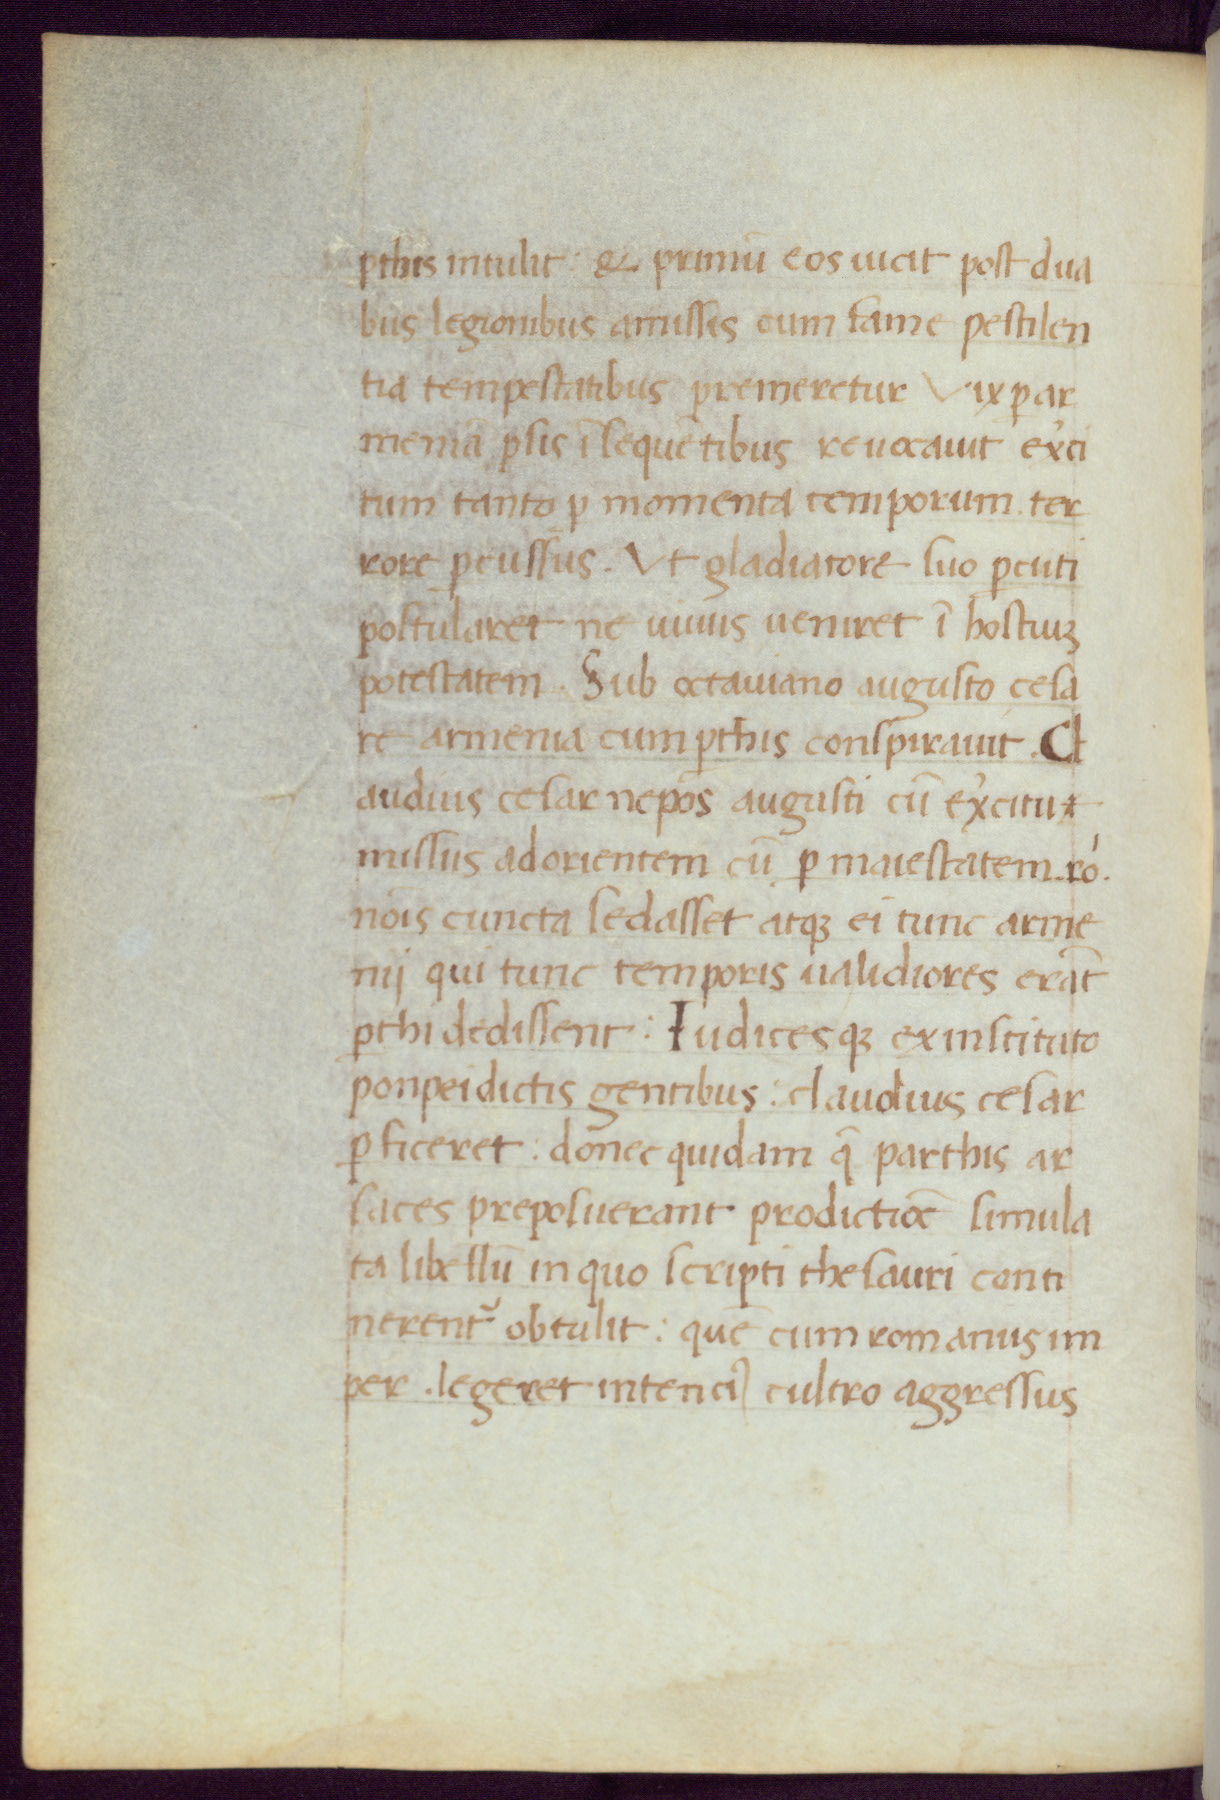 ꝑthis intulit: & primū eos uicit post dua
bus legionibus amissis cum fame pestilen
tia tempestatibus premeretur Vix ꝑ ar
meniā ꝑsis īsequētibus reuocauit ex̓ci
tum tanto ꝑ momenta temporum ter
rore ꝑcussus. Vt gladiatore suo ꝑcuti
postularet ne uiuus ueniret ī hostiuꝫ
potestatem. Sub octauiano augusto cesa
re armenia cum ꝑthis conspirauit. Cl
audius cesar nepos augusti cū ex̓citu
missus ad orientem cū ꝑ maiestatem ro.
nois̄ cuncta sedasset atqꝫ ei tunc arme
nij qui tunc temporis ualidiores erāt
ꝑthi dedissent: Iudicesqꝫ ex instituto
ponpei dictis gentibus: claudius cesar
ꝑficeret: donec quidam q̄ parthis ar
saces preposuerant prodictiōē simula
ta libellū in quo scripti thesauri conti
nerent᷑ obtulit: quē cum romanus im
per. legeret intenci cultro aggressus